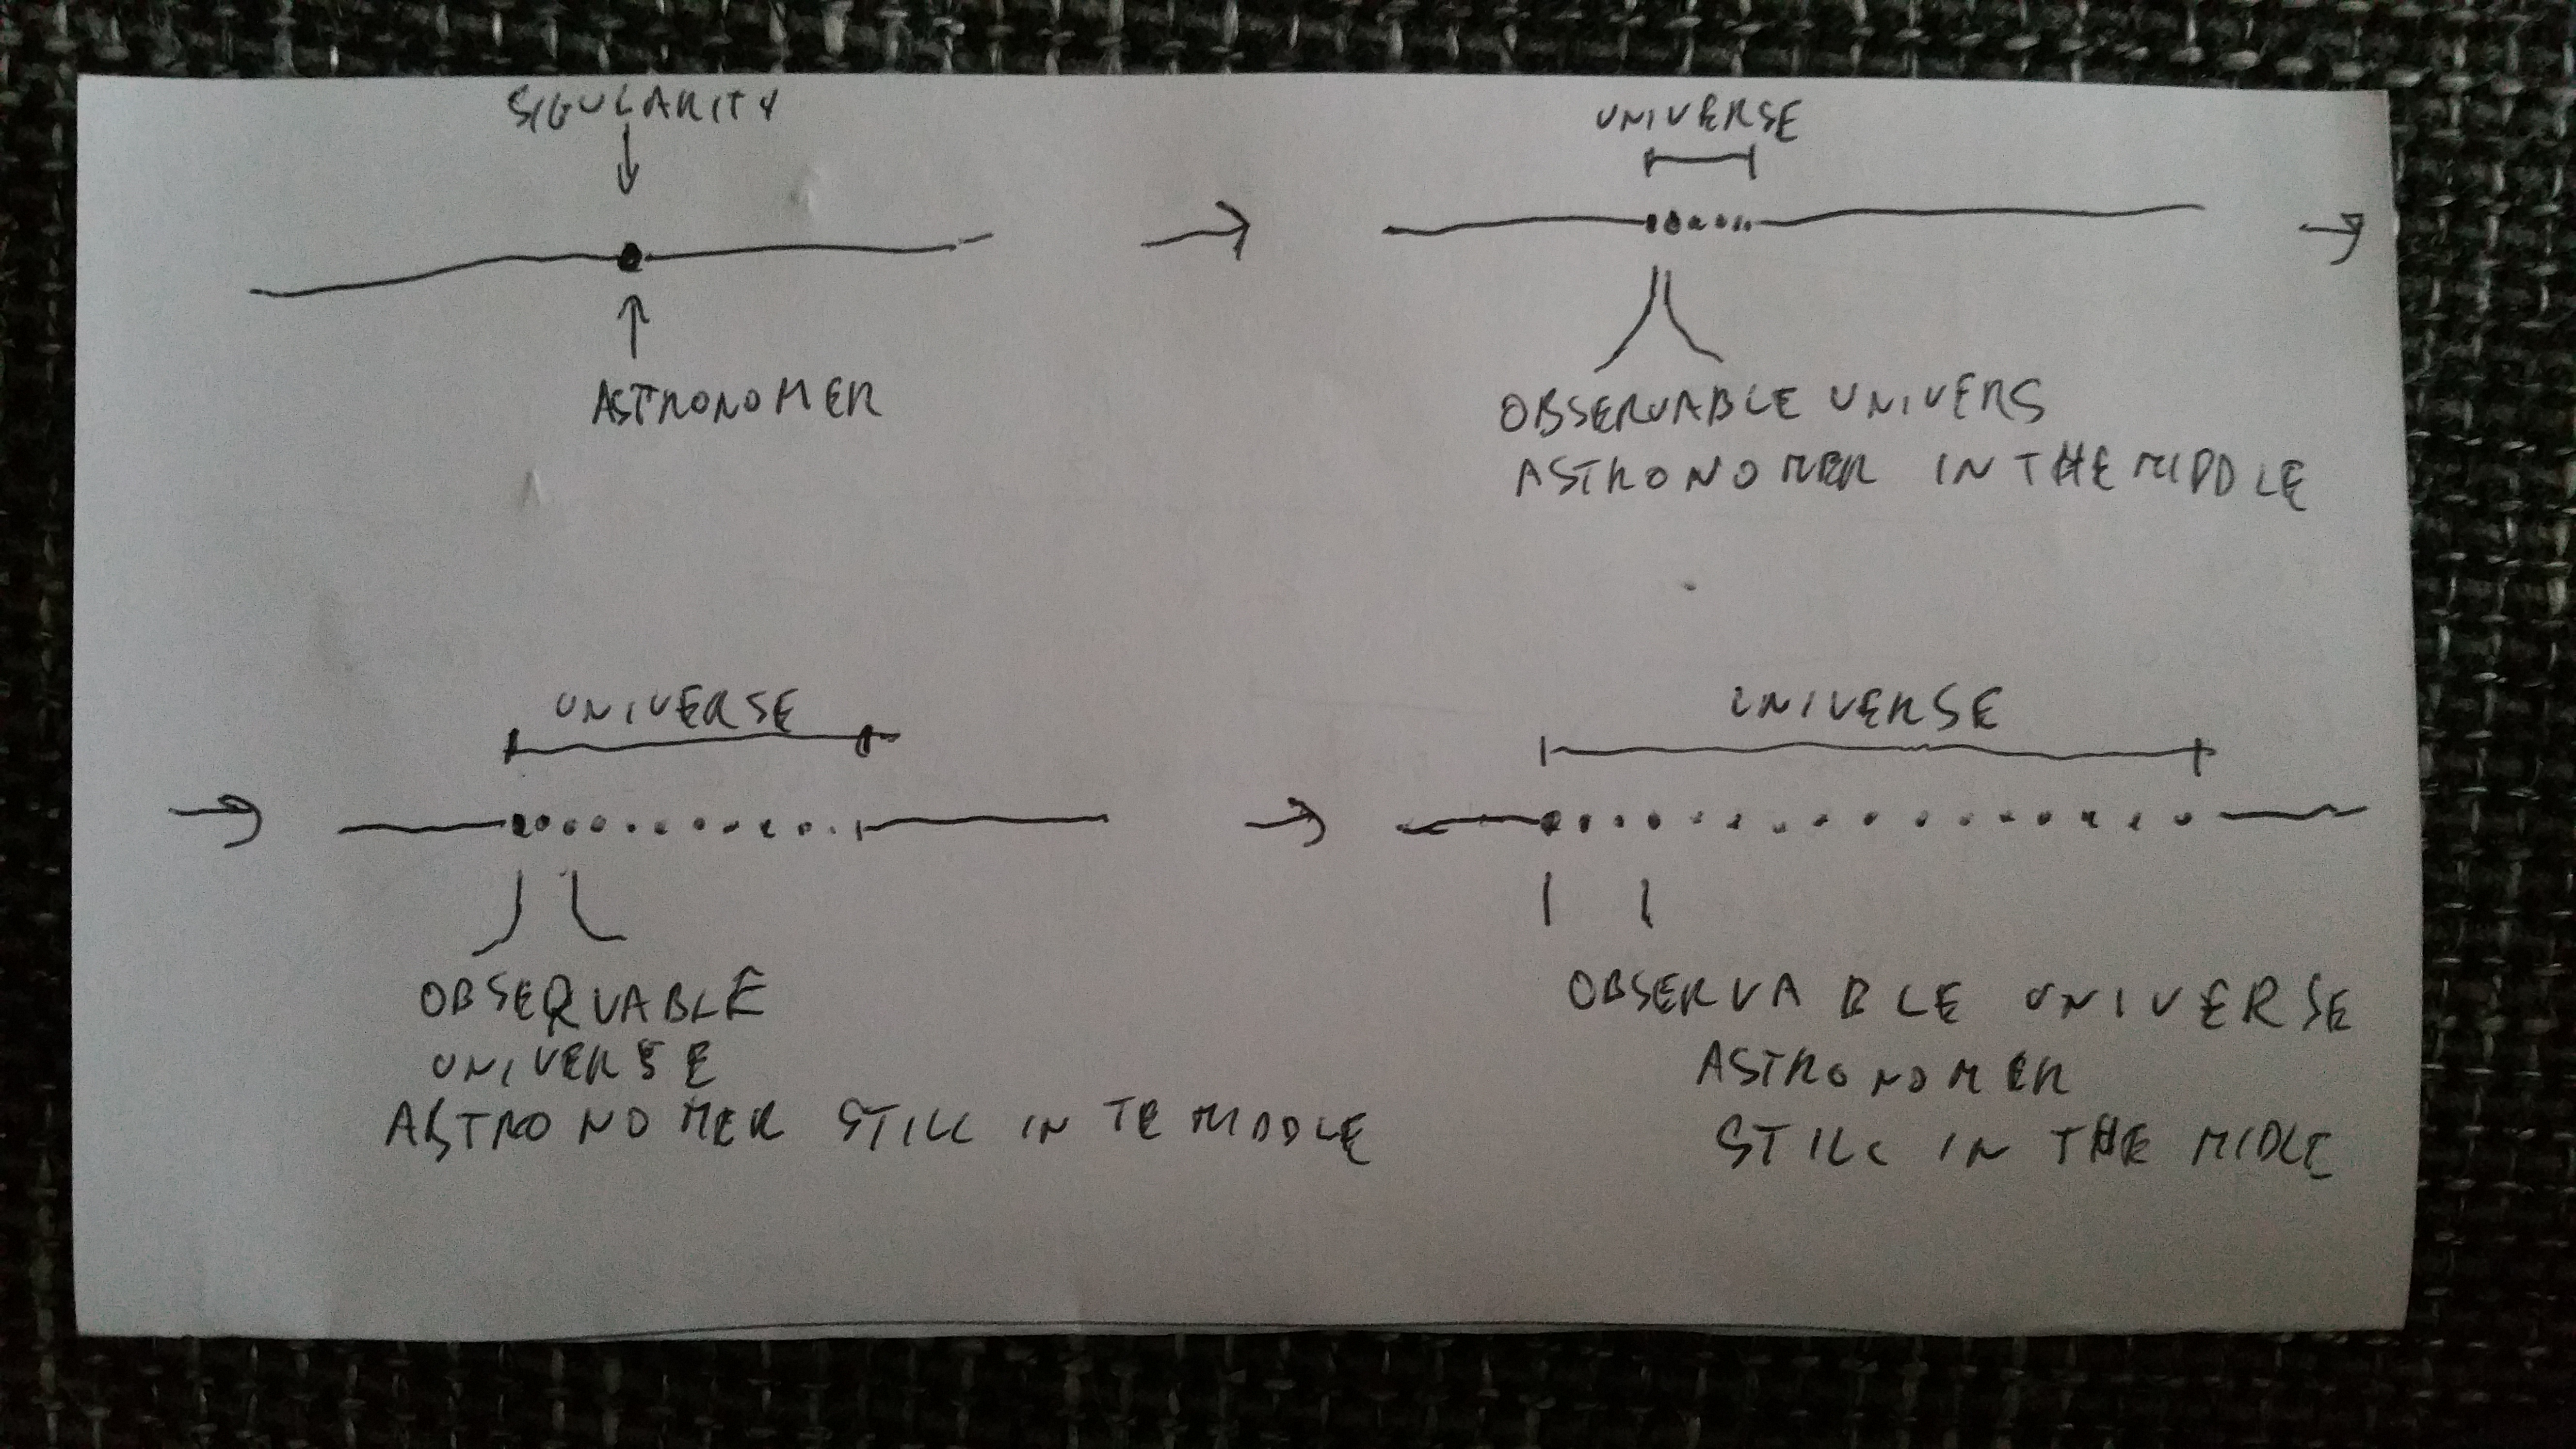 SIGULARITY
ASTRONOMER
UNIVERSE
OBSERVABLE UNIVERS
ASTRONOMER IN THE MIDDLE
UNIVERSE
OBSERVABLE
UNIVERSE
ASTRONOMER STILL IN TE MIDDLE
UNIVERSE
OBSERVABLE UNIVERSE
ASTRONOMER
STILL IN THE MIDLE